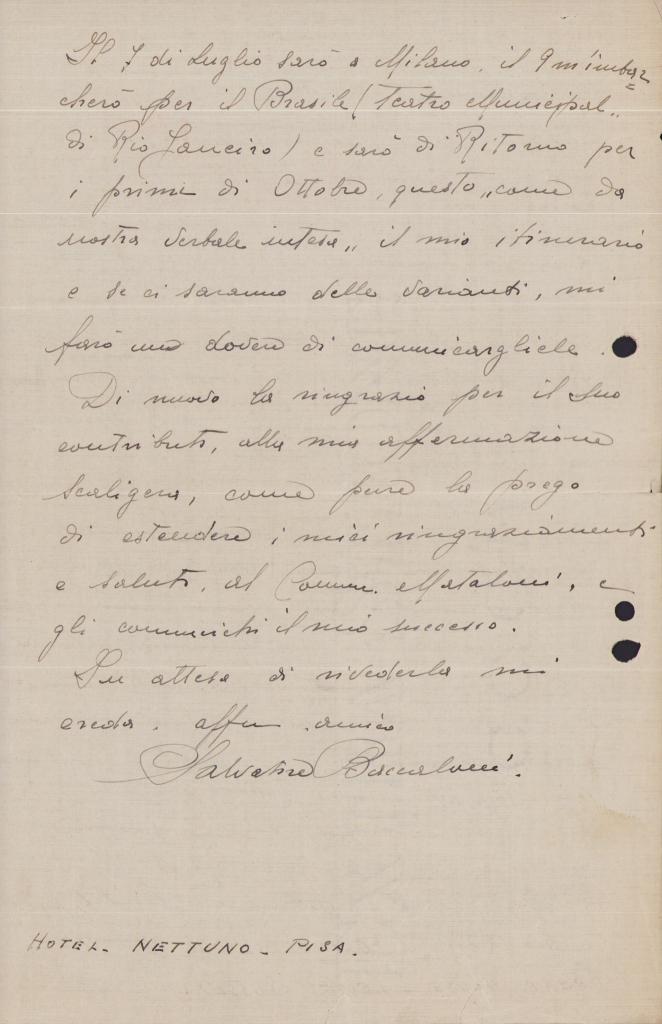 Il 7 di Luglio sarò a Milano, il 9 m'imbar=
cherò per il Brasile (Teatro Municipal„
di Rio Janeiro) e sarò di Ritorno per
i primi di Ottobre, questo „come da
nostra verbale intesa„ il mio itinerario
e se ci saranno delle varianti, mi
farò un dovere di comunicargliele.
Di nuovo la ringrazio per il Suo
contributo, alla mia affermazione
Scaligera, come pure la prego
di estendere i miei ringraziamenti
e saluti, al Comm. Mataloni, e
gli comunichi il mio successo.
In attesa di rivederla mi
creda. affmo amico
Salvatore Baccaloni.
HOTEL - NETTUNO - PISA.